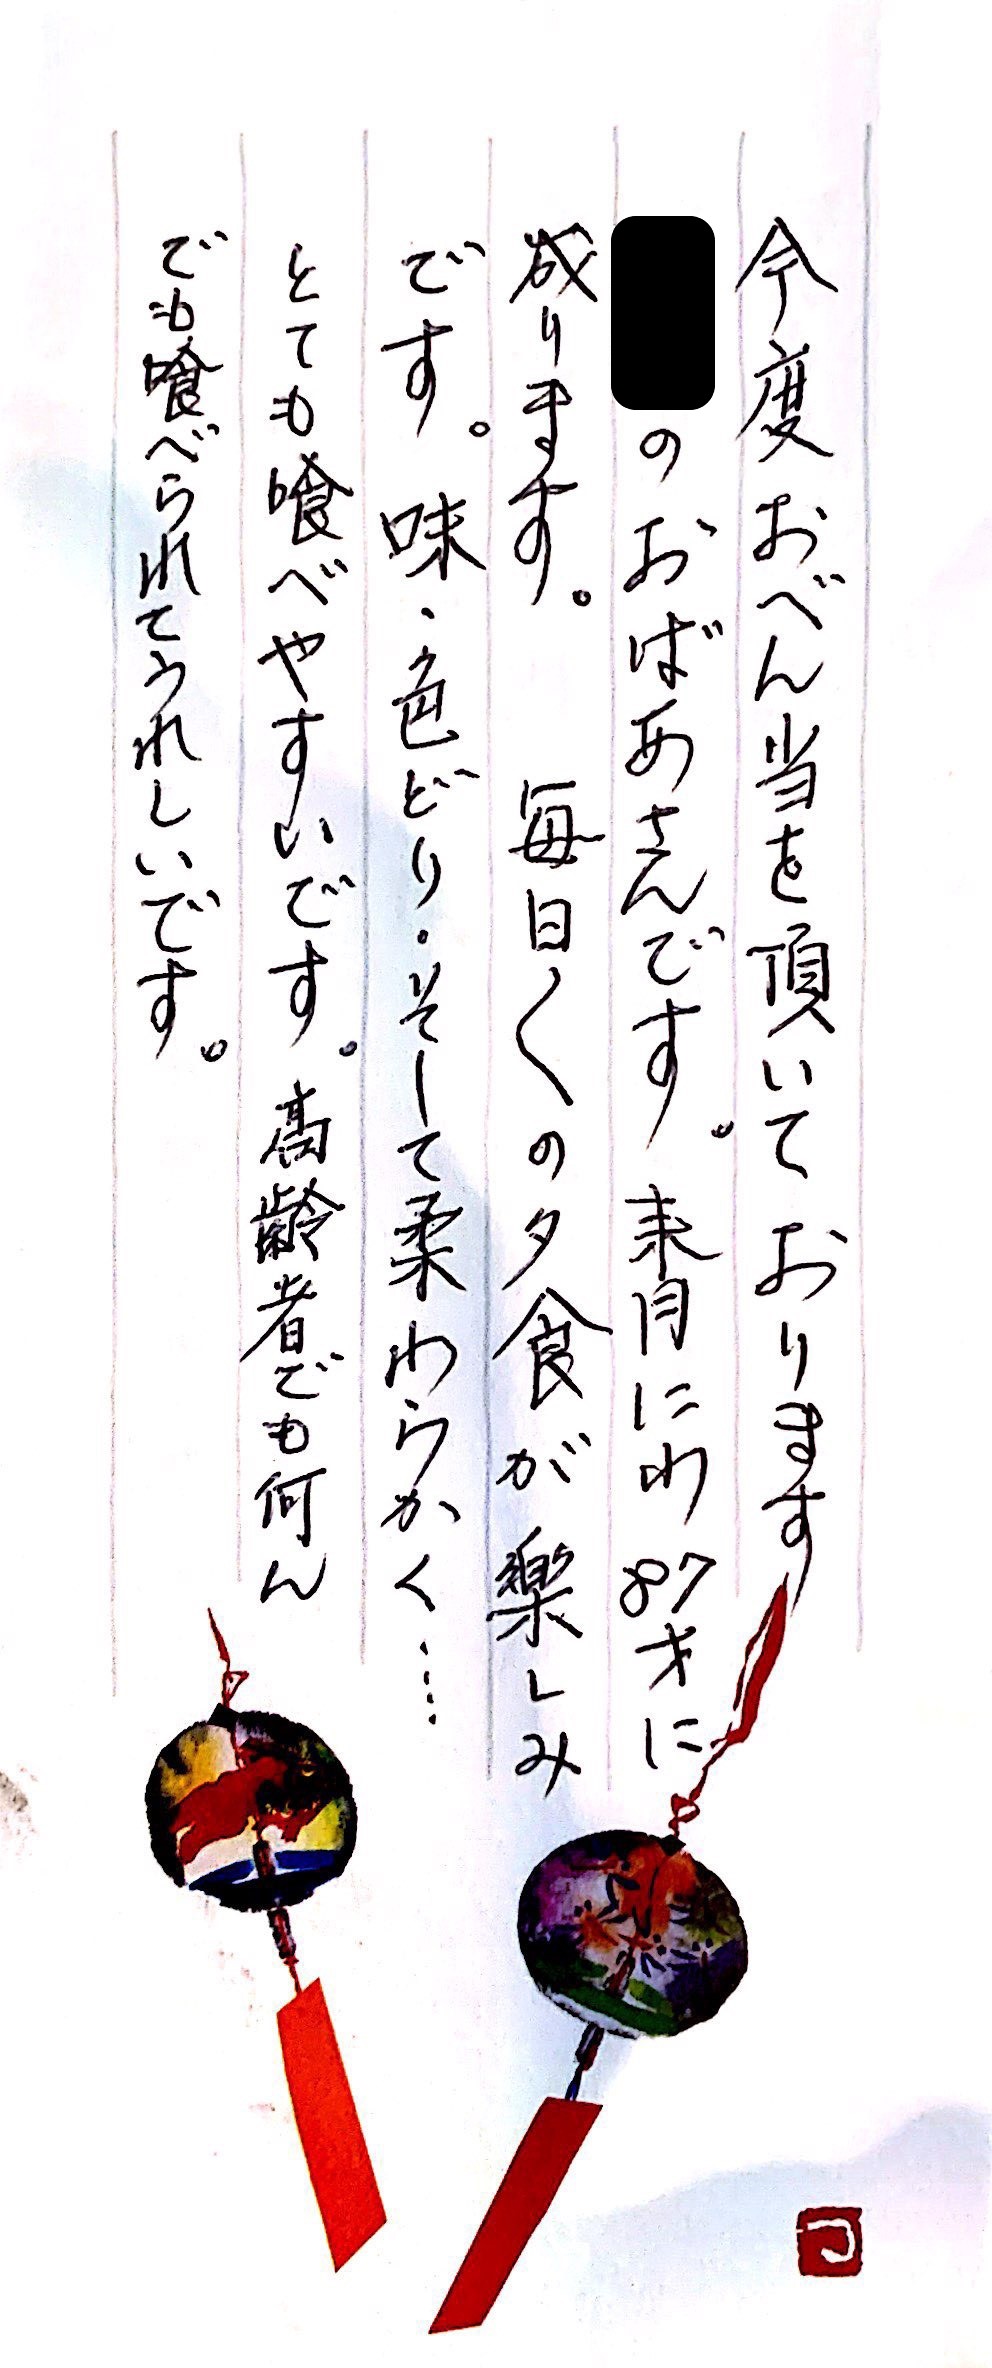 今度おべん当を頂いております
のおばあさんです。来月にわ87才に
成ります。 毎日〱の夕食が楽しみ
です。味、色どり・そして柔わらかく…
とても喰べやすいです。高齢者でも何ん
でも喰べられてうれしいです。